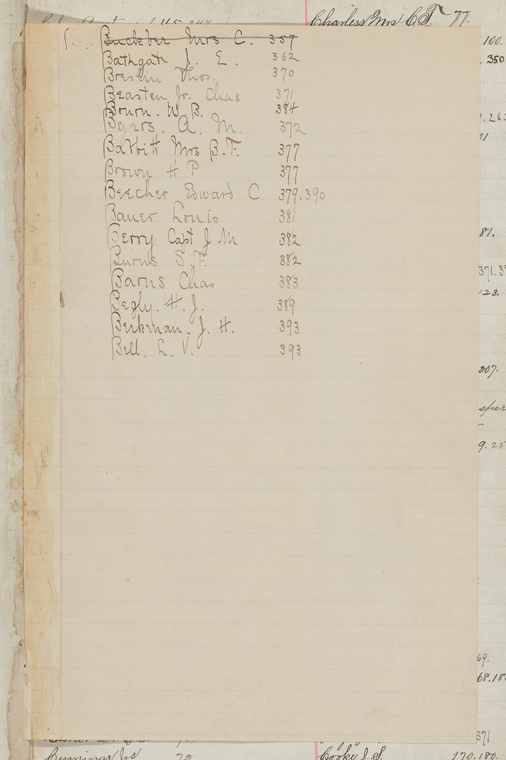 Charless Mrs C. T. 77.
Buckbee Mrs C. 357
100.
Bathgate J. E. 362
350
Breslin Thos. 370
Beasten Jr. Chas 371
Brun. W. B. 384
Bgers. A. M. 372
Babbitt Mrs B. F. 377
Brown H P 377
Beecher Edward C 379.390
Bauer Louis 381
Berry Capt J M 382
81.
Burns S. F. 382
Barns Chas 383
371.3
123.
Begly. H. J. 389
Berkman. J. H. 393
Bell. L. V. 393
207.
9.25
69.
68.18
371
Cummings Jos 72
Cooke J. S. 170.180.